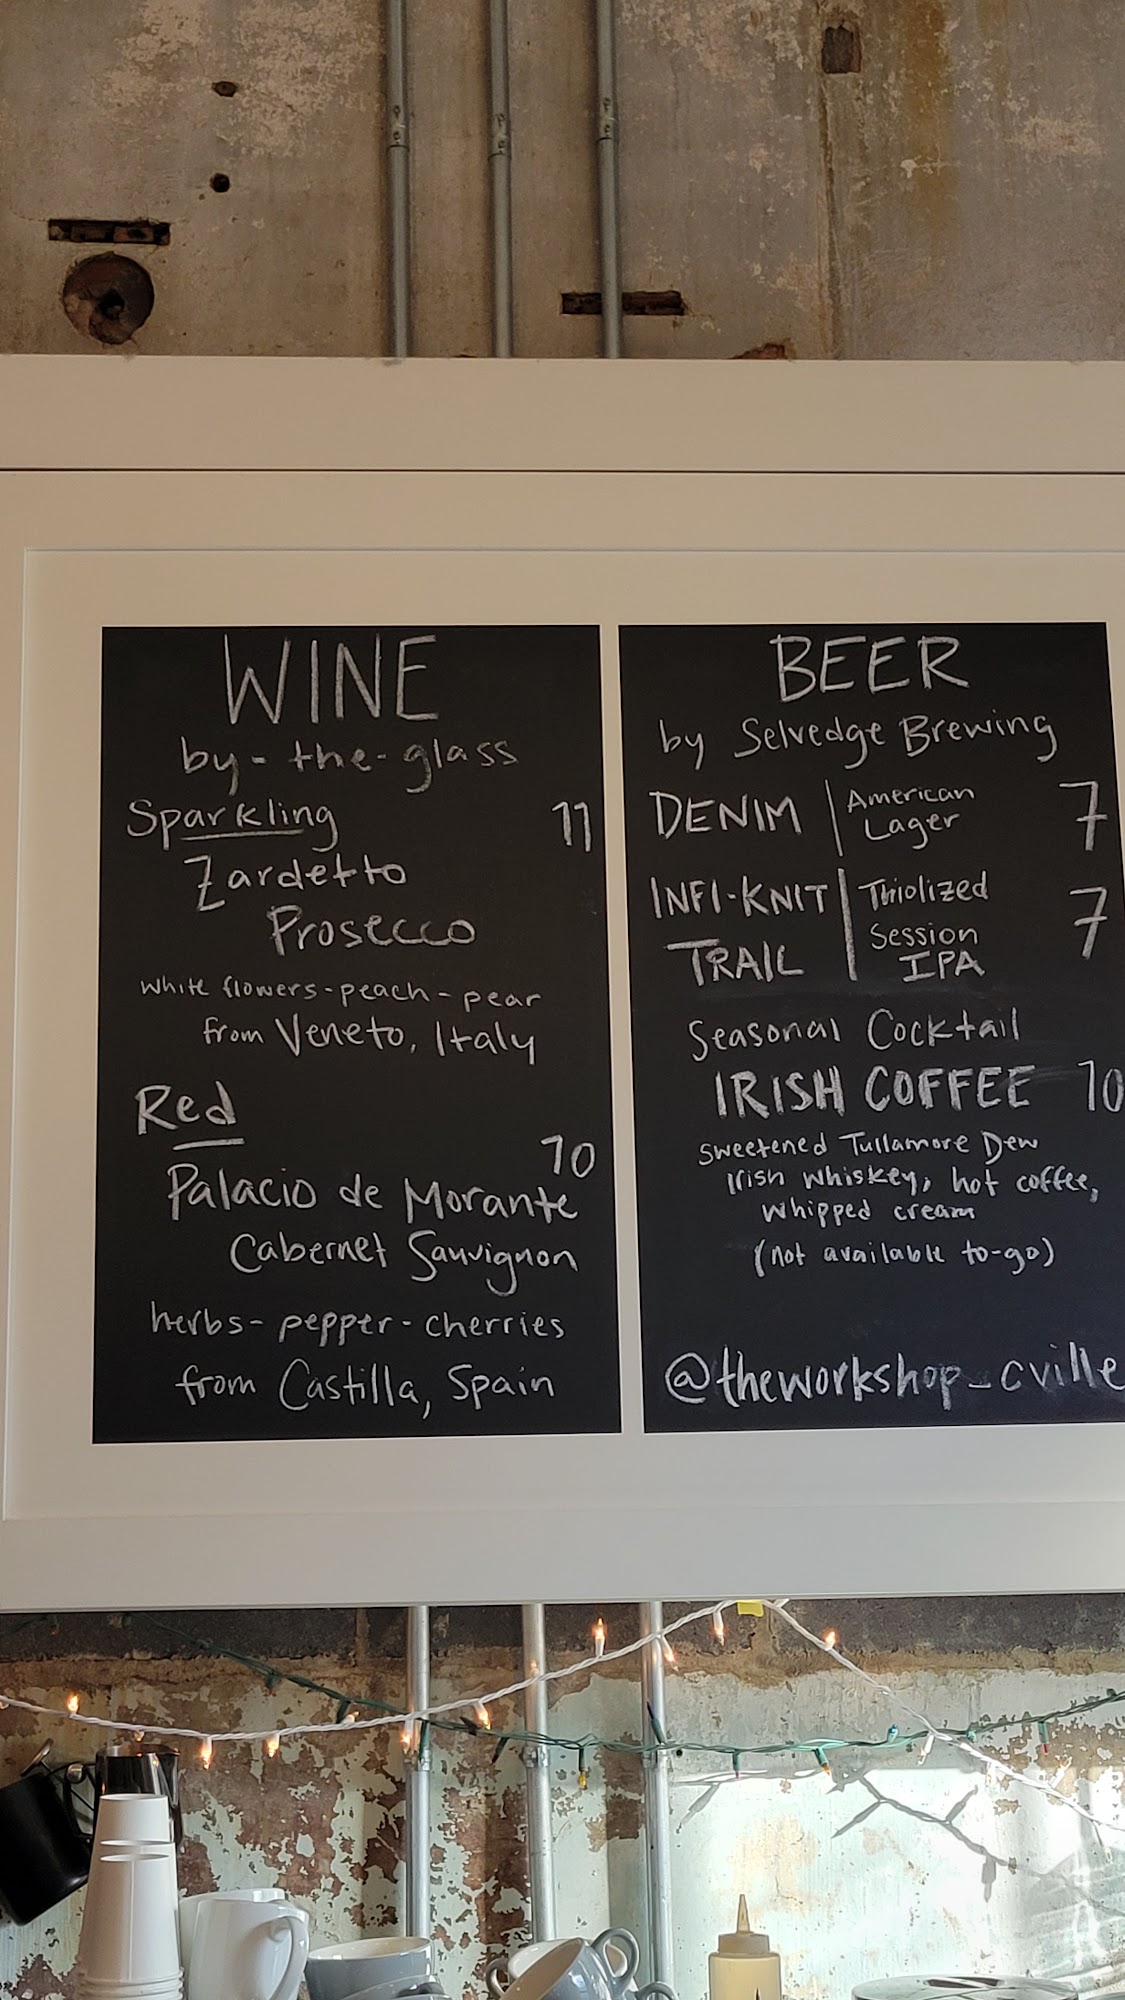 WINE
by-the-glass
Sparkling 11
Zardetto
Prosecco
white flowers-peach-pear
from Veneto, Italy
Red
10
Palacio de Morante
Cabernet Sauvignon
herbs-pepper-cherries
from Castilla, Spain
BEER
by Selvedge Brewing
DENIM | American
Lager 7
INFI-KNIT | Thiolized
TRAIL Session
IPA 7
Seasonal Cocktail
IRISH COFFEE 10
sweetened Tullamore Dew
Irish whiskey, hot coffee,
whipped cream
(not available to-go)
@theworkshop_cville